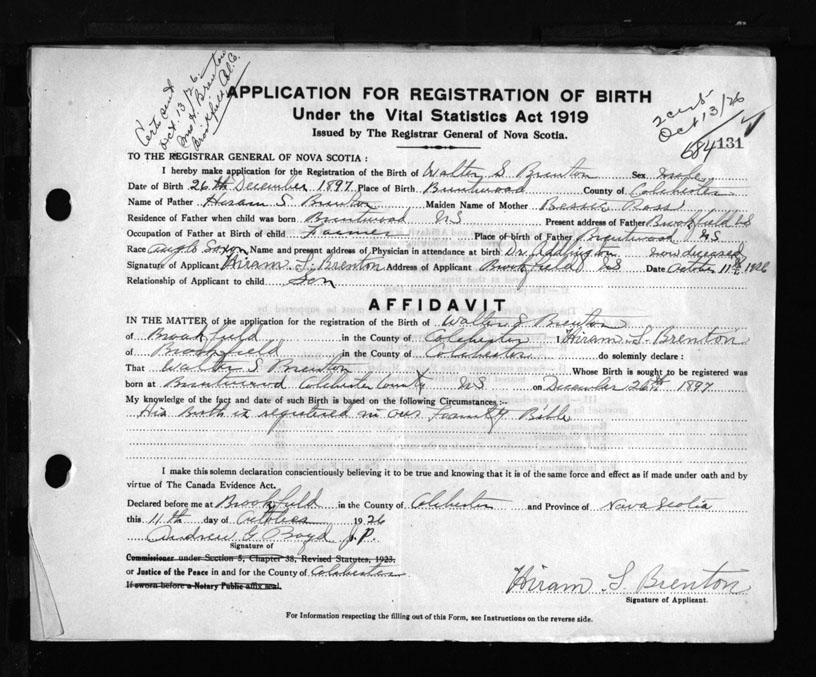 Cert sent
Oct. 13/26.
Mrs H. Brenton
Brookfield Col. Co.
APPLICATION FOR REGISTRATION OF BIRTH
Under the Vital Statistics Act 1919
Issued by The Registrar General of Nova Scotia.
2 cert
Oct 13/26
684 131
TO THE REGISTRAR GENERAL OF NOVA SCOTIA :
I hereby make application for the Registration of the Birth of Walter S Brenton Sex Male
Date of Birth 26th December 1897 Place of Birth Brentwood County of Colchester
Name of Father Hiram S. Brenton Maiden Name of Mother Bessie Ross
Residence of Father when child was born Brentwood NS Present address of Father Brookfield NS
Occupation of Father at Birth of child Farmer Place of birth of Father Brentwood NS
Race Anglo Saxon Name and present address of Physician in attendance at birth Dr. now deceased
Signature of Applicant Hiram S. Brenton Address of Applicant Brookfield NS Date October 11th 1926
Relationship of Applicant to child Son
AFFIDAVIT
IN THE MATTER of the application for the registration of the Birth of Walter S Brenton
of Brookfield in the County of Colchester I Hiram S. Brenton
of Brookfield in the County of Colchester do solemnly declare :
That Walter S. Brenton Whose Birth is sought to be registered was
born at Brentwood Colchester County NS on December 26th 1897
My knowledge of the fact and date of such Birth is based on the following Circumstances :—
His Birth is registered in our Family Bible
I make this solemn declaration conscientiously believing it to be true and knowing that it is of the same force and effect as if made under oath and by
virtue of The Canada Evidence Act.
Declared before me at Brookfield in the County of Colchester and Province of Nova Scotia
this 11th day of October 1926
Andrew G Boyd J.P.
Signature of
Commissioner under Section 5, Chapter 38, Revised Statutes, 1923.
or Justice of the Peace in and for the County of Colchester
If sworn before a Notary Public affix seal.
Hiram S. Brenton
Signature of Applicant.
For Information respecting the filling out of this Form, see Instructions on the reverse side.